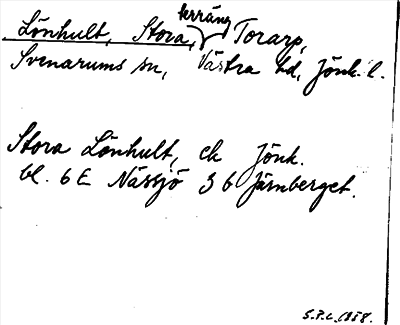 terräng
Lönhult, Stora, Torarp,
Svenarums sn, Västra hd, Jönk. l.
Stora Lönhult, ek Jönk.
bl. 6 E Nässjö 3 b Järnberget.
S.P.L. 1958.